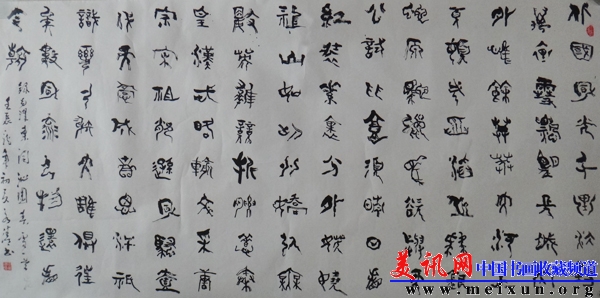 北國風光千里冰封
萬里雪飄望長城內
外惟餘莽莽大河上
下頓失滔滔山舞銀
蛇原馳蠟象欲與天
公試比高須晴日看
紅裝素裹分外妖嬈
江山如此多嬌引無
數英雄競折腰惜秦
皇漢武略輸文采唐
宗宋祖稍遜風騷一
代天驕成吉思汗祇
識彎弓射大雕俱往
矣數風流人物還看
今朝
錄毛澤東詞沁園春雪
壬辰龍年初夏書
美讯网 中国书画收藏频道
www.meixun.org